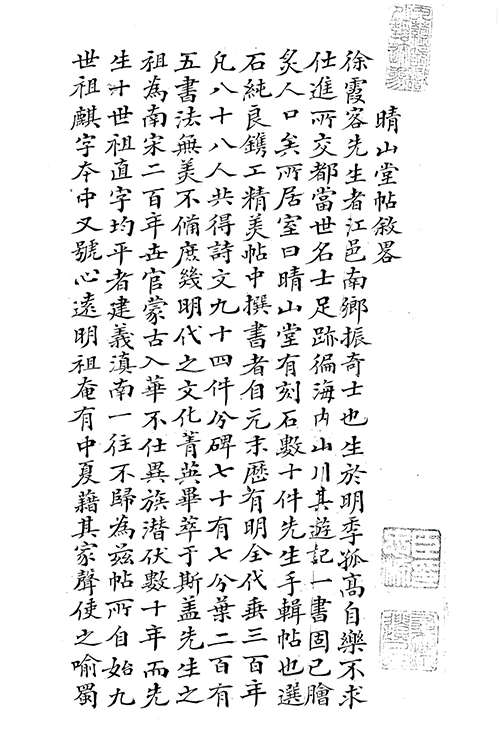 晴山堂帖敘畧
徐霞客先生者江邑南鄉振奇士也生於明季孤高自樂不求
仕進所交都當世名士足跡徧海内山川其遊記一書固已膾
炙人口矣所居室曰晴山堂有刻石數十件先生手輯帖也選
石純良鐫工精美帖中撰書者自元末歷有明全代垂三百年
凡八十八人共得詩文九十四件分碑七十有七分葉二百有
五書法無美不備庶幾明代之文化菁英畢萃于斯盖先生之
祖為南宋二百年世官蒙古入華不仕異族潜伏數十年而先
生十世祖直字均平者建義滇南一往不歸為兹帖所自始九
世祖麒字本中又號心遠明祖奄有中夏藉其家聲使之喻蜀